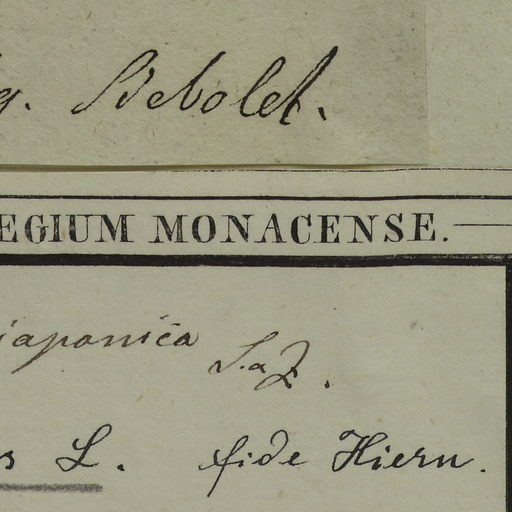 g. Siebolel.
EGIUM MONACENSE.
iaponica S. a Z.
s L. fide Hiern.